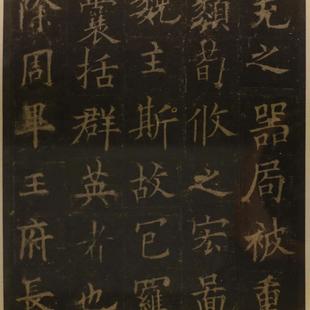 充之器局被重
類荀攸之宏啚
魏主斯故包羅
囊括群英者也
除周畢王府長